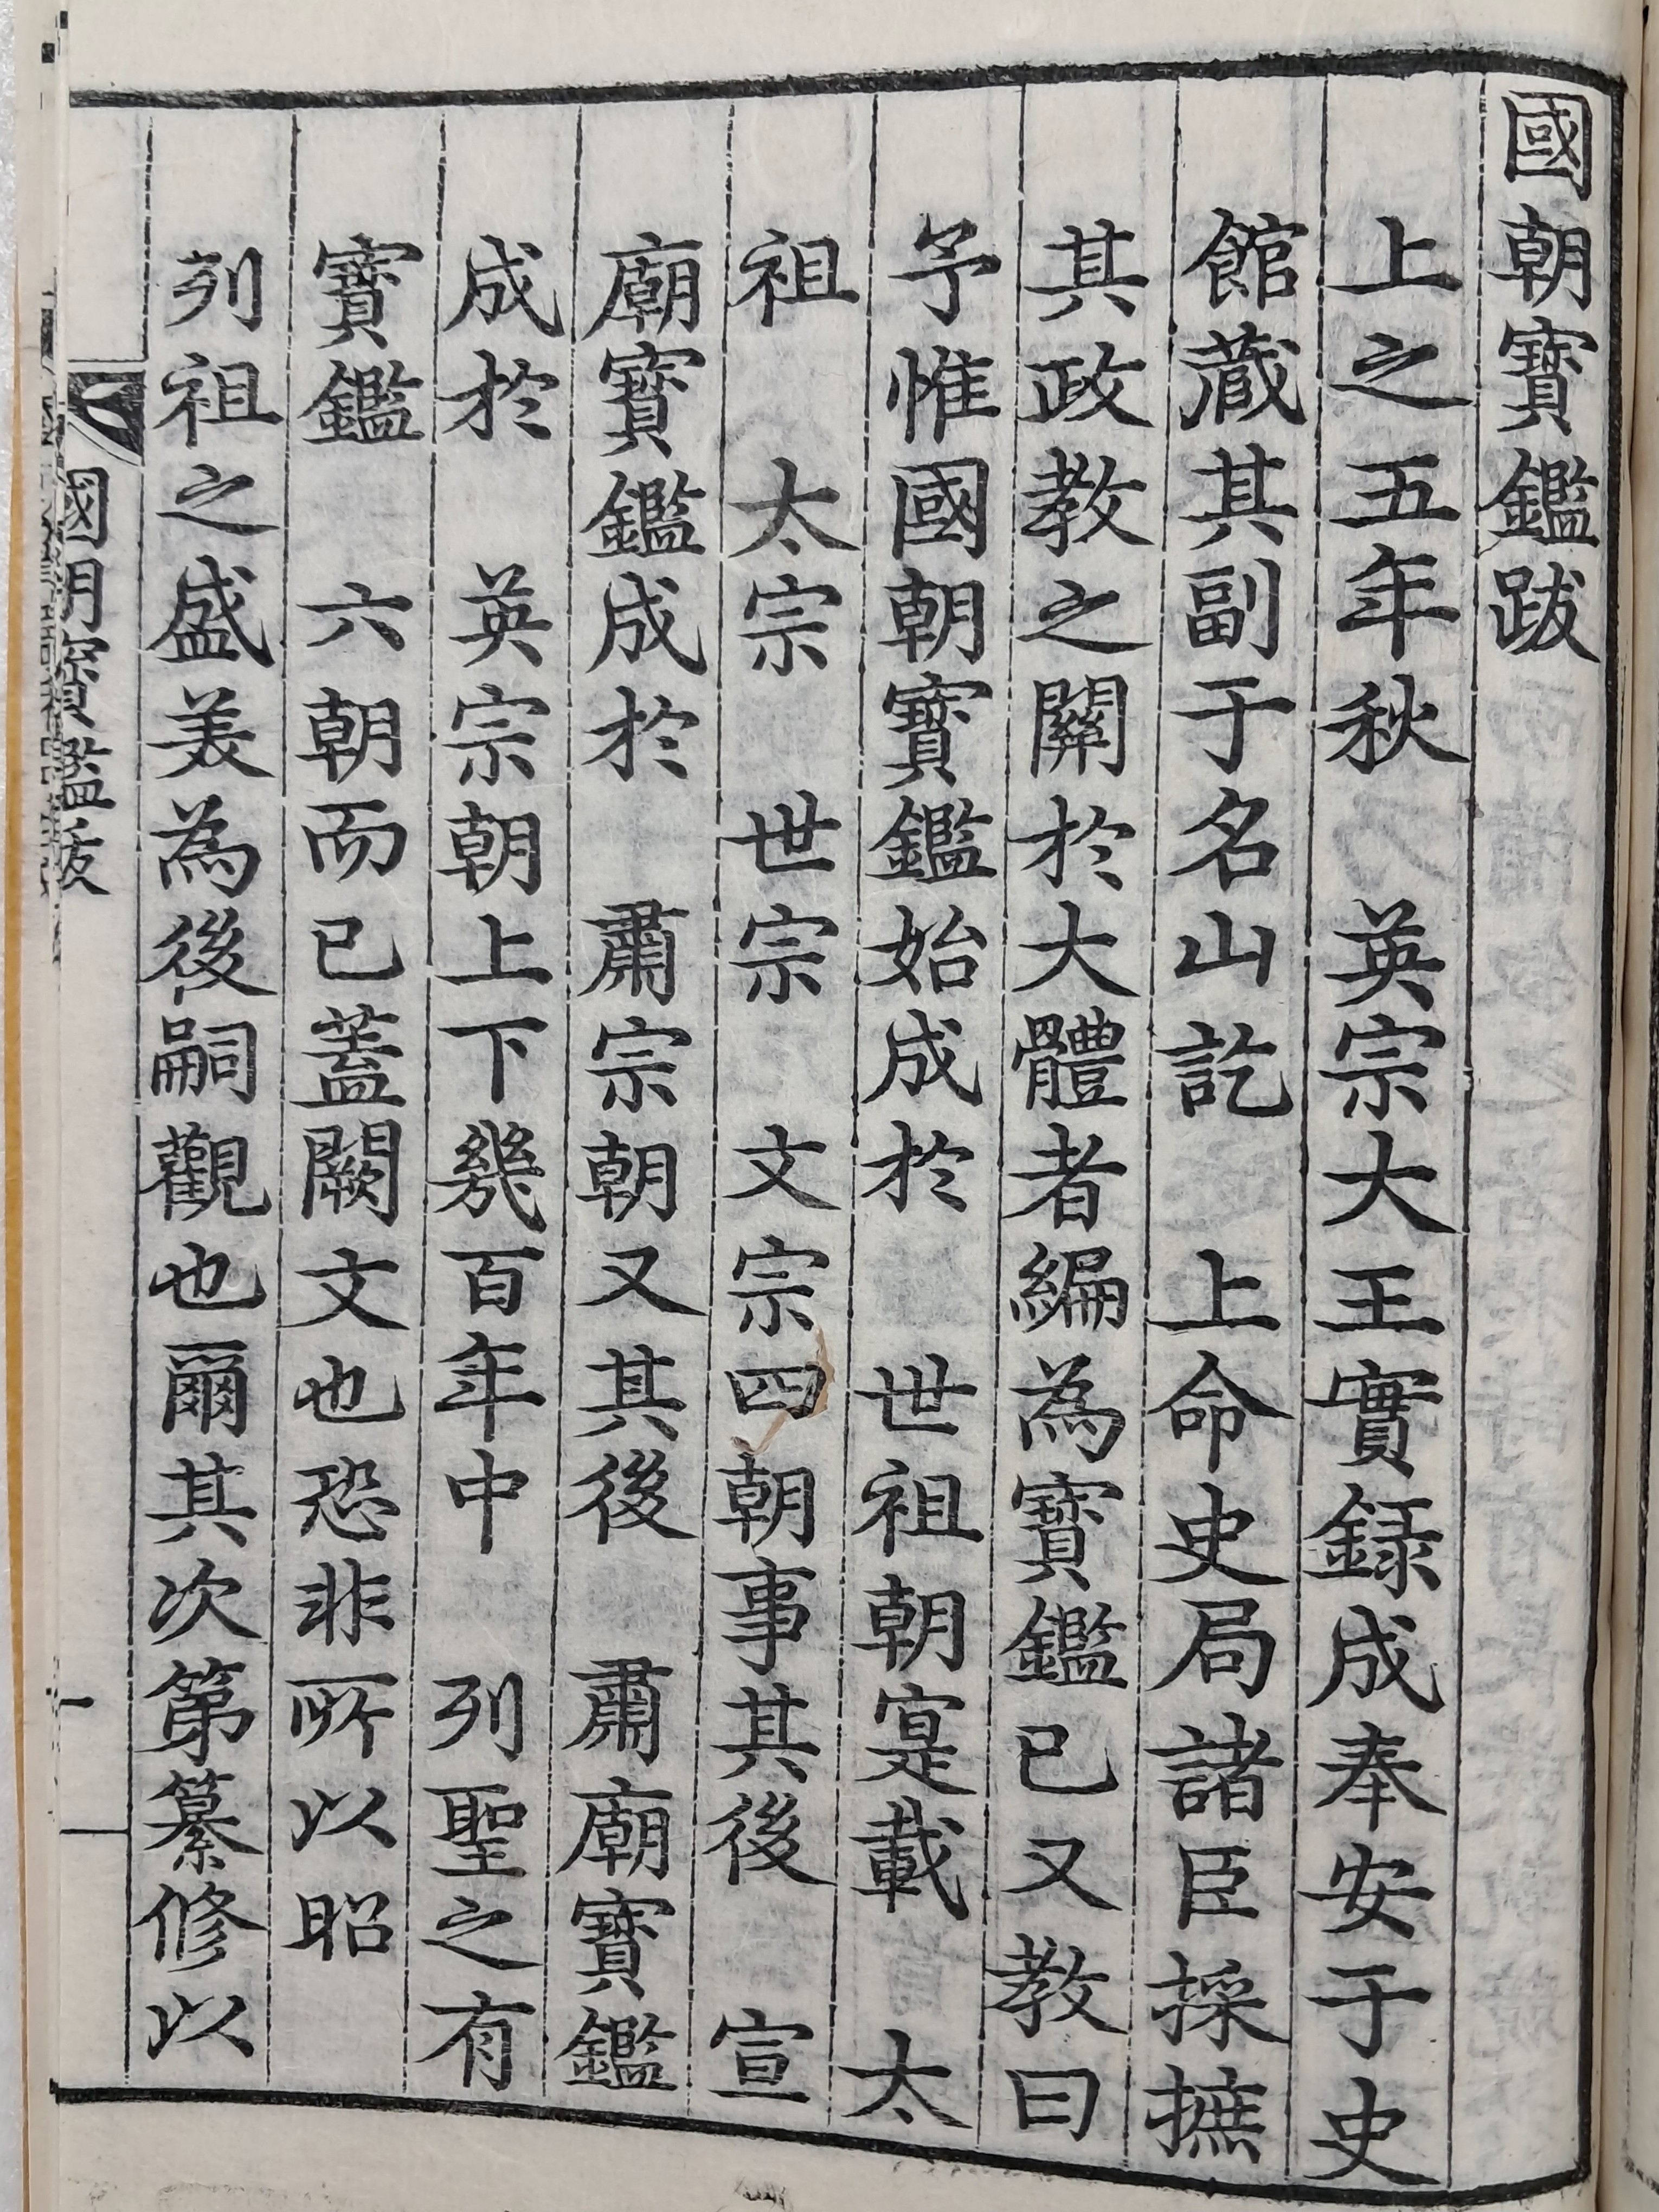 國朝寶鑑跋
上之五年秋　英宗大王實録成奉安于史
館蔵其副于名山訖　上命史局諸臣採摭
其政教之關於大體者編為寶鑑已又教曰
予惟國朝寶鑑始成於　世祖朝寔載　太
祖　太宗　世宗　文宗四朝事其後　宣
廟寶鑑成於　肅宗朝又其後　肅廟寶鑑
成於　英宗朝上下幾百年中　列聖之有
寶鑑　六朝而已蓋闕文也恐非所以昭
列祖之盛美為後嗣觀也爾其次第纂修以
國朝寶鑑跋
一